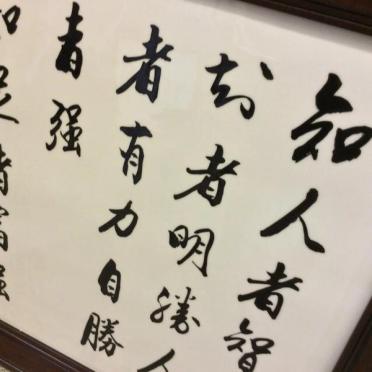 知人者智
知者明勝人
者有力自勝
者强
知足者富强